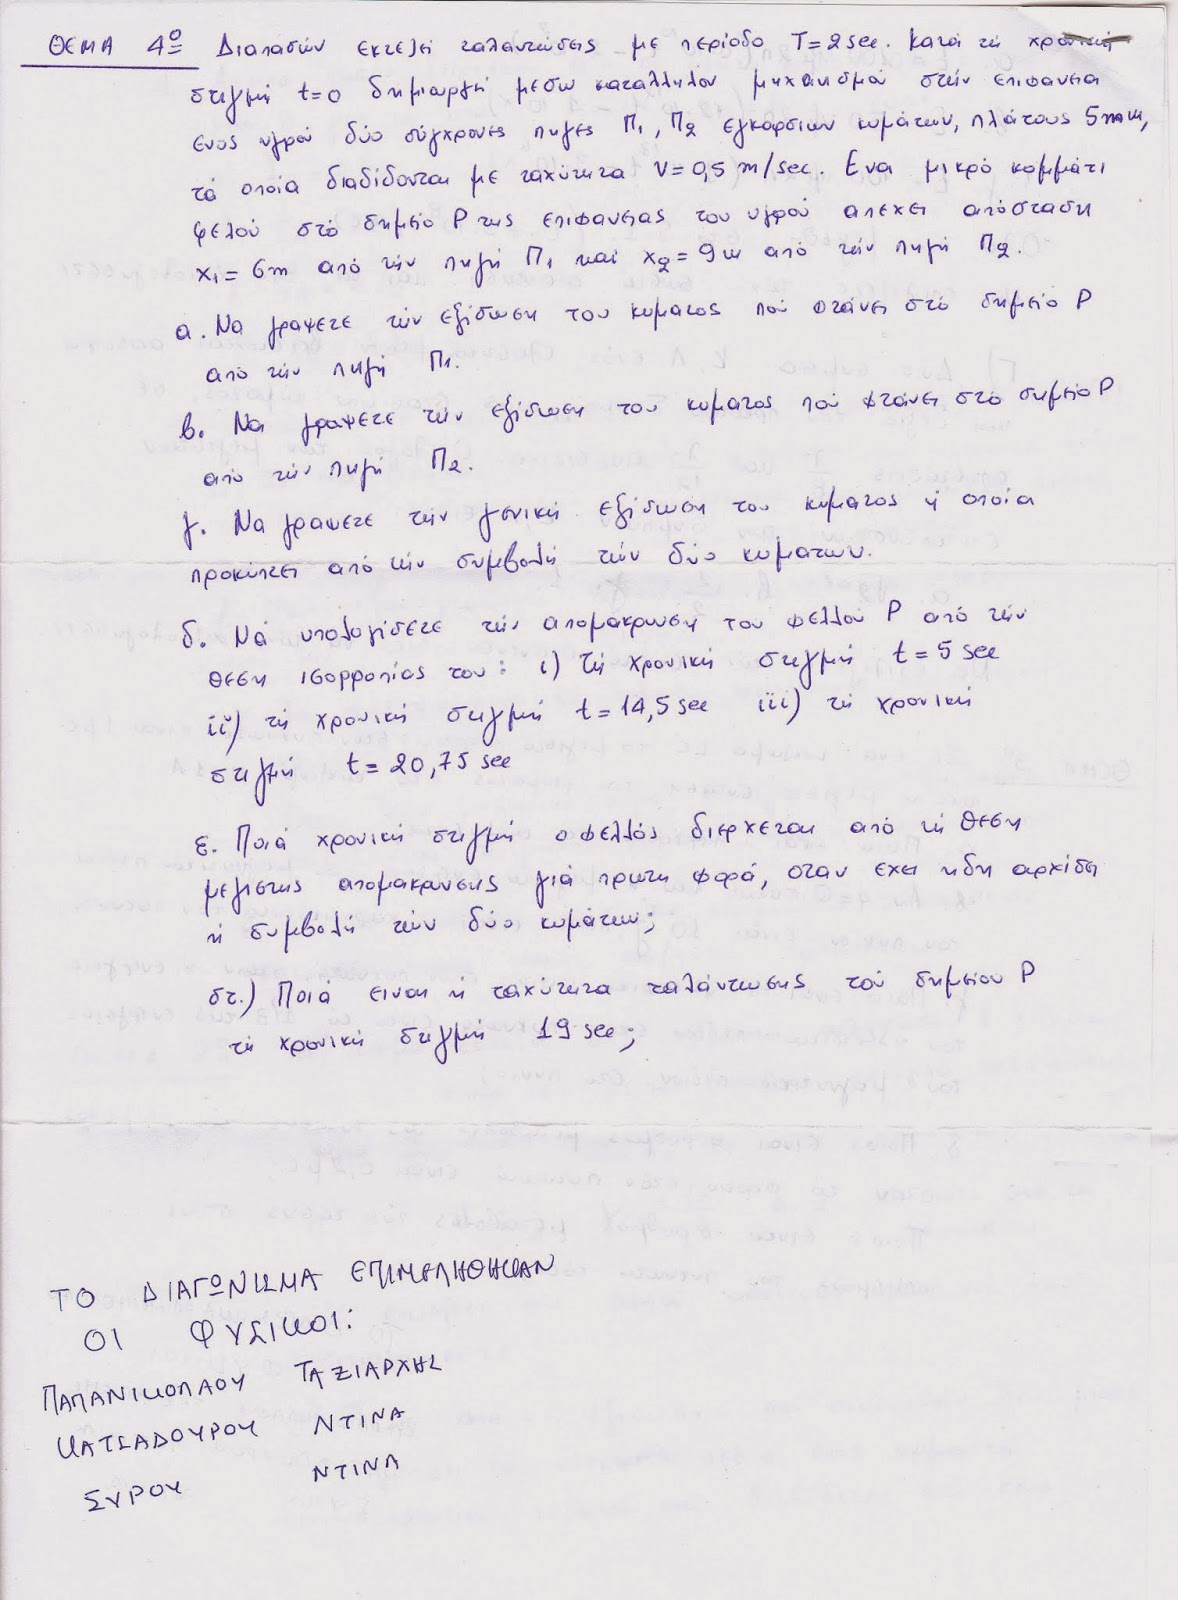 ΘΕΜΑ 4ο Διαπασών εκτελεί ταλαντώσεις με περίοδο T=2sec. Κατά τη χρονική
στιγμή t=0 δημιουργεί μέσω κατάλληλου μηχανισμού στην επιφάνεια
ενός υγρού δύο σύγχρονες πηγές Π1, Π2 εγκαρσίων κυμάτων, πλάτους 5mm,
τα οποία διαδίδονται με ταχύτητα V=0,5 m/sec. Ένα μικρό κομμάτι
φελού στο σημείο P της επιφανείας του υγρού απέχει απόσταση
x1=6m από την πηγή Π1 και x2=9m από την πηγή Π2.
α. Να γράψετε την εξίσωση του κύματος που φτάνει στο σημείο P
από την πηγή Π1.
β. Να γράψετε την εξίσωση του κύματος που φτάνει στο σημείο P
από την πηγή Π2.
γ. Να γράψετε την γενική εξίσωση του κύματος η οποία
προκύπτει από την συμβολή των δύο κυμάτων.
δ. Να υπολογίσετε την απομάκρυνση του φελλού P από την
θέση ισορροπίας του: i) τη χρονική στιγμή t=5 sec
ii) τη χρονική στιγμή t=14,5 sec iii) τη χρονική
στιγμή t=20,75 sec
ε. Ποιά χρονική στιγμή ο φελλός διέρχεται από τη θέση
μέγιστης απομάκρυνσης γιά πρώτη φορά, όταν έχει ήδη αρχίσει
η συμβολή των δύο κυμάτων;
στ.) Ποιά είναι η ταχύτητα ταλάντωσης του σημείου P
τη χρονική στιγμή 19 sec;
ΤΟ ΔΙΑΓΩΝΙΣΜΑ ΕΠΙΜΕΛΗΘΗΚΑΝ
ΟΙ ΦΥΣΙΚΟΙ:
ΠΑΠΑΝΙΚΟΛΑΟΥ ΤΑΞΙΑΡΧΗΣ
ΚΑΤΣΑΔΟΥΡΟΥ ΝΤΙΝΑ
ΣΥΡΟΥ ΝΤΙΝΑ